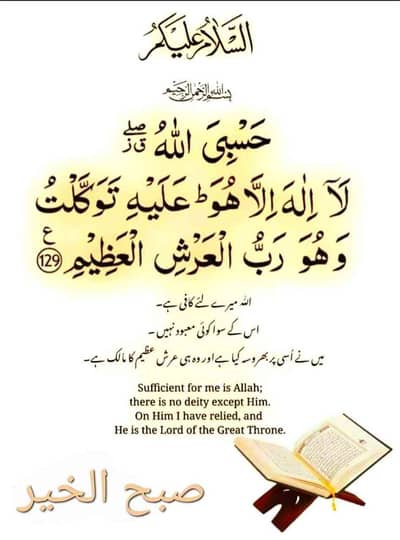 السَّلَامُ عَلَيْكُمْ
بِسْمِ اللهِ الرَّحْمٰنِ الرَّحِيْمِ
حَسْبِیَ اللّٰهُ ۖق ز
لَاۤ اِلٰهَ اِلَّا هُوَ ؕ عَلَیْهِ تَوَكَّلْتُ
وَ هُوَ رَبُّ الْعَرْشِ الْعَظِیْمِ ع 129
اللہ میرے لئے کافی ہے۔
اس کے سوا کوئی معبود نہیں۔
میں نے اُسی پر بھروسہ کیا ہے اور وہ ہی عرش عظیم کا مالک ہے۔
Sufficient for me is Allah;
there is no deity except Him.
On Him I have relied, and
He is the Lord of the Great Throne.
صبح الخير